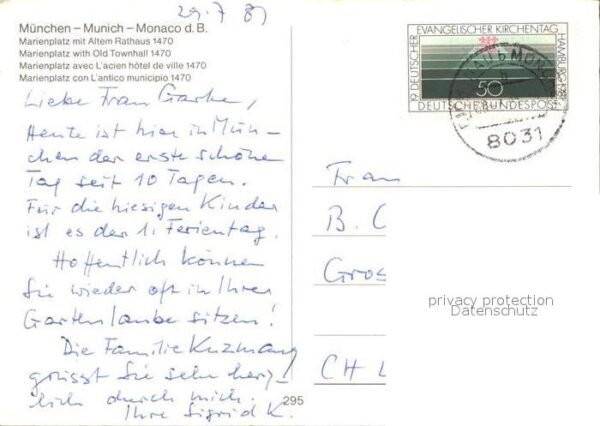 29.7.81
München – Munich – Monaco d. B.
Marienplatz mit Altem Rathaus 1470
Marienplatz with Old Townhall 1470
Marienplatz avec L'acien hôtel de ville 1470
Marienplatz con L'antico municipio 1470
Liebe Frau
Heute ist hier in Mün-
chen der erste schöne
Tag seit 10 Tagen.
Für die hiesigen Kinder
ist es der 1. Ferientag.
Hoffentlich können
Sie wieder oft in Ihrer
Gartenlaube sitzen!
Die Familie
grüsst Sie sehr herz-
lich durch mich.
Ihre Sigrid K.
295
19. DEUTSCHER EVANGELISCHER KIRCHENTAG HAMBURG 1981
50
DEUTSCHE BUNDESPOST
8031
Frau
B. C
Gros
CH L
privacy protection
Datenschutz